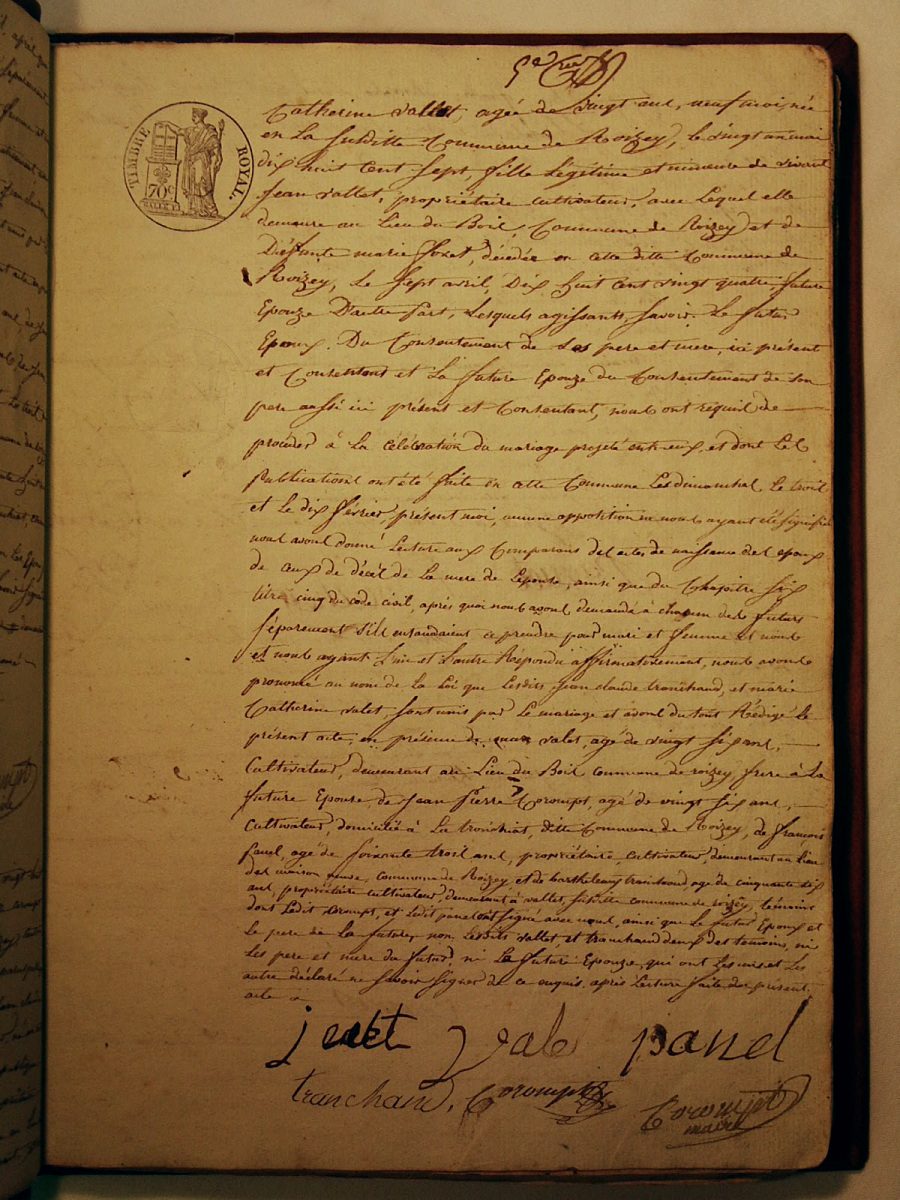 TIMBRE ROYAL.
70 c
Catherine vallet, agée de vingt ans, neuf mois, née
en La susditte Commune de Roizey, le vingt un mai
dix huit cent sept, fille Légitime et mineure de vivant
Jean vallet, propriétaire cultivateur, avec Lequel elle
demeure au Lieu du Boil, Commune de Roizey et de
Deffunte marie foret, décédée en cette ditte Commune de
Roizey, Le sept avril, Dix huit cent vingt quatre, future
Epouze D'autre Part, Lesquels agissants, savoir. Le futur
Epoux. Du Consentement de ses pere et mere, ici présent
et Consentent et La future Epouze du Consentement de son
pere aussi ici présent et Consentant, nous ont réquis de
proceder à La célébration du mariage projeté entr'eux et dont Les
publications ont été faite en cette Commune Les dimanches Le trois
et Le dix février, présent moi, aucune opposition ne nous ayant été signifié
nous avons donné Lecture aux Comparans des actes de naissance des epoux
de ceux de décès de La mere de Lepouse, ainsi que du Chapitre six
titre cinq du code civil, après quoi nous avons demandé à chacun des futurs
séparement s'ils entendaient se prendre pour mari et femme et nous
et nous ayant L'un et L'autre Répondu affirmativement, nous avons
prononcé au nom de La Loi que Lesdits Jean claude tranchand, et marie
Catherine valet, sont unis par Le mariage et avons du tout Rédigé le
présent acte, en présence de valet, agé de vingt six ans,
Cultivateur, demeurant au Lieu du Boil commune de roizey, frere à La
future Epouse, de Jean Pierre Corompt, agé de vingt six ans,
Cultivateur, domicilié à La tronchiat, ditte Commune de Roizey, de françois
panel, agé de soixante trois ans, propriétaire, cultivateur, demeurant au Lieu
des maison neuve, commune de Roizey, et de barthelemy tranchand agé de cinquante dix
ans, propriétaire cultivateur, demeurant à vallet, susditte commune de roizey, témoins
dont Ledit corompt, et Ledit panel ont signé avec nous, ainsi que Le futur Epoux et
Le pere de La future, non Lesdits vallet, et tranchand deux des temoins, ni
Les pere et mere du futur, ni La future Epouze, qui ont Les uns et Les
autre déclaré ne savoir signer de ce enquis, après Lecture faite du présent
acte
vale panel
tranchand, Corompt
Corompt
maire